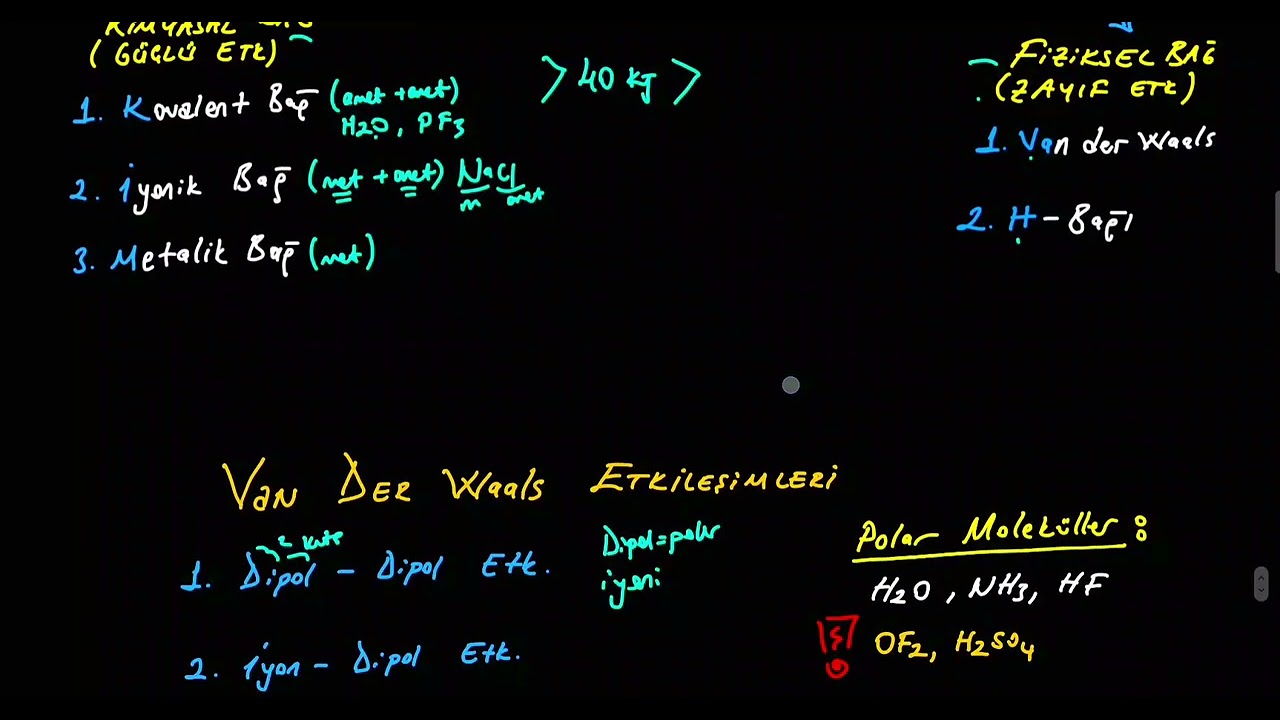 KİMYASAL BAĞ
(GÜÇLÜ ETK)
1. Kovalent Bağ (amet + amet)
H2O, PF3
2. İyonik Bağ (met + amet) NaCl
m amet
3. Metalik Bağ (met)
> 40 kJ >
FİZİKSEL BAĞ
(ZAYIF ETK)
1. Van der Waals
2. H - Bağı
VAN DER Waals ETKİLEŞİMLERİ
2 kutp
1. Dipol - Dipol Etk.
2. İyon - Dipol Etk.
Dipol = polar
iyon:
Polar Moleküller:
H2O, NH3, HF
OF2, H2SO4